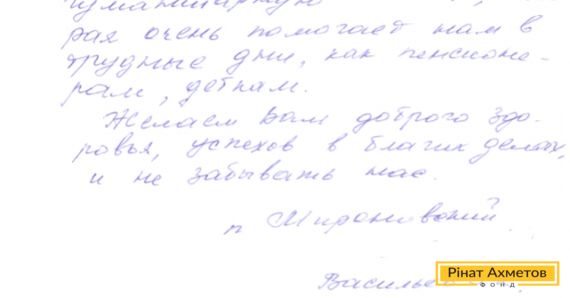 гуманитарную
рая очень помогает нам в
трудные дни, как пенсионе-
рам, деткам.
Желаем Вам доброго здо-
ровья, успехов в благих делах,
и не забывать нас.
п Мироновский
Васильев
Рінат Ахметов
ФОНД